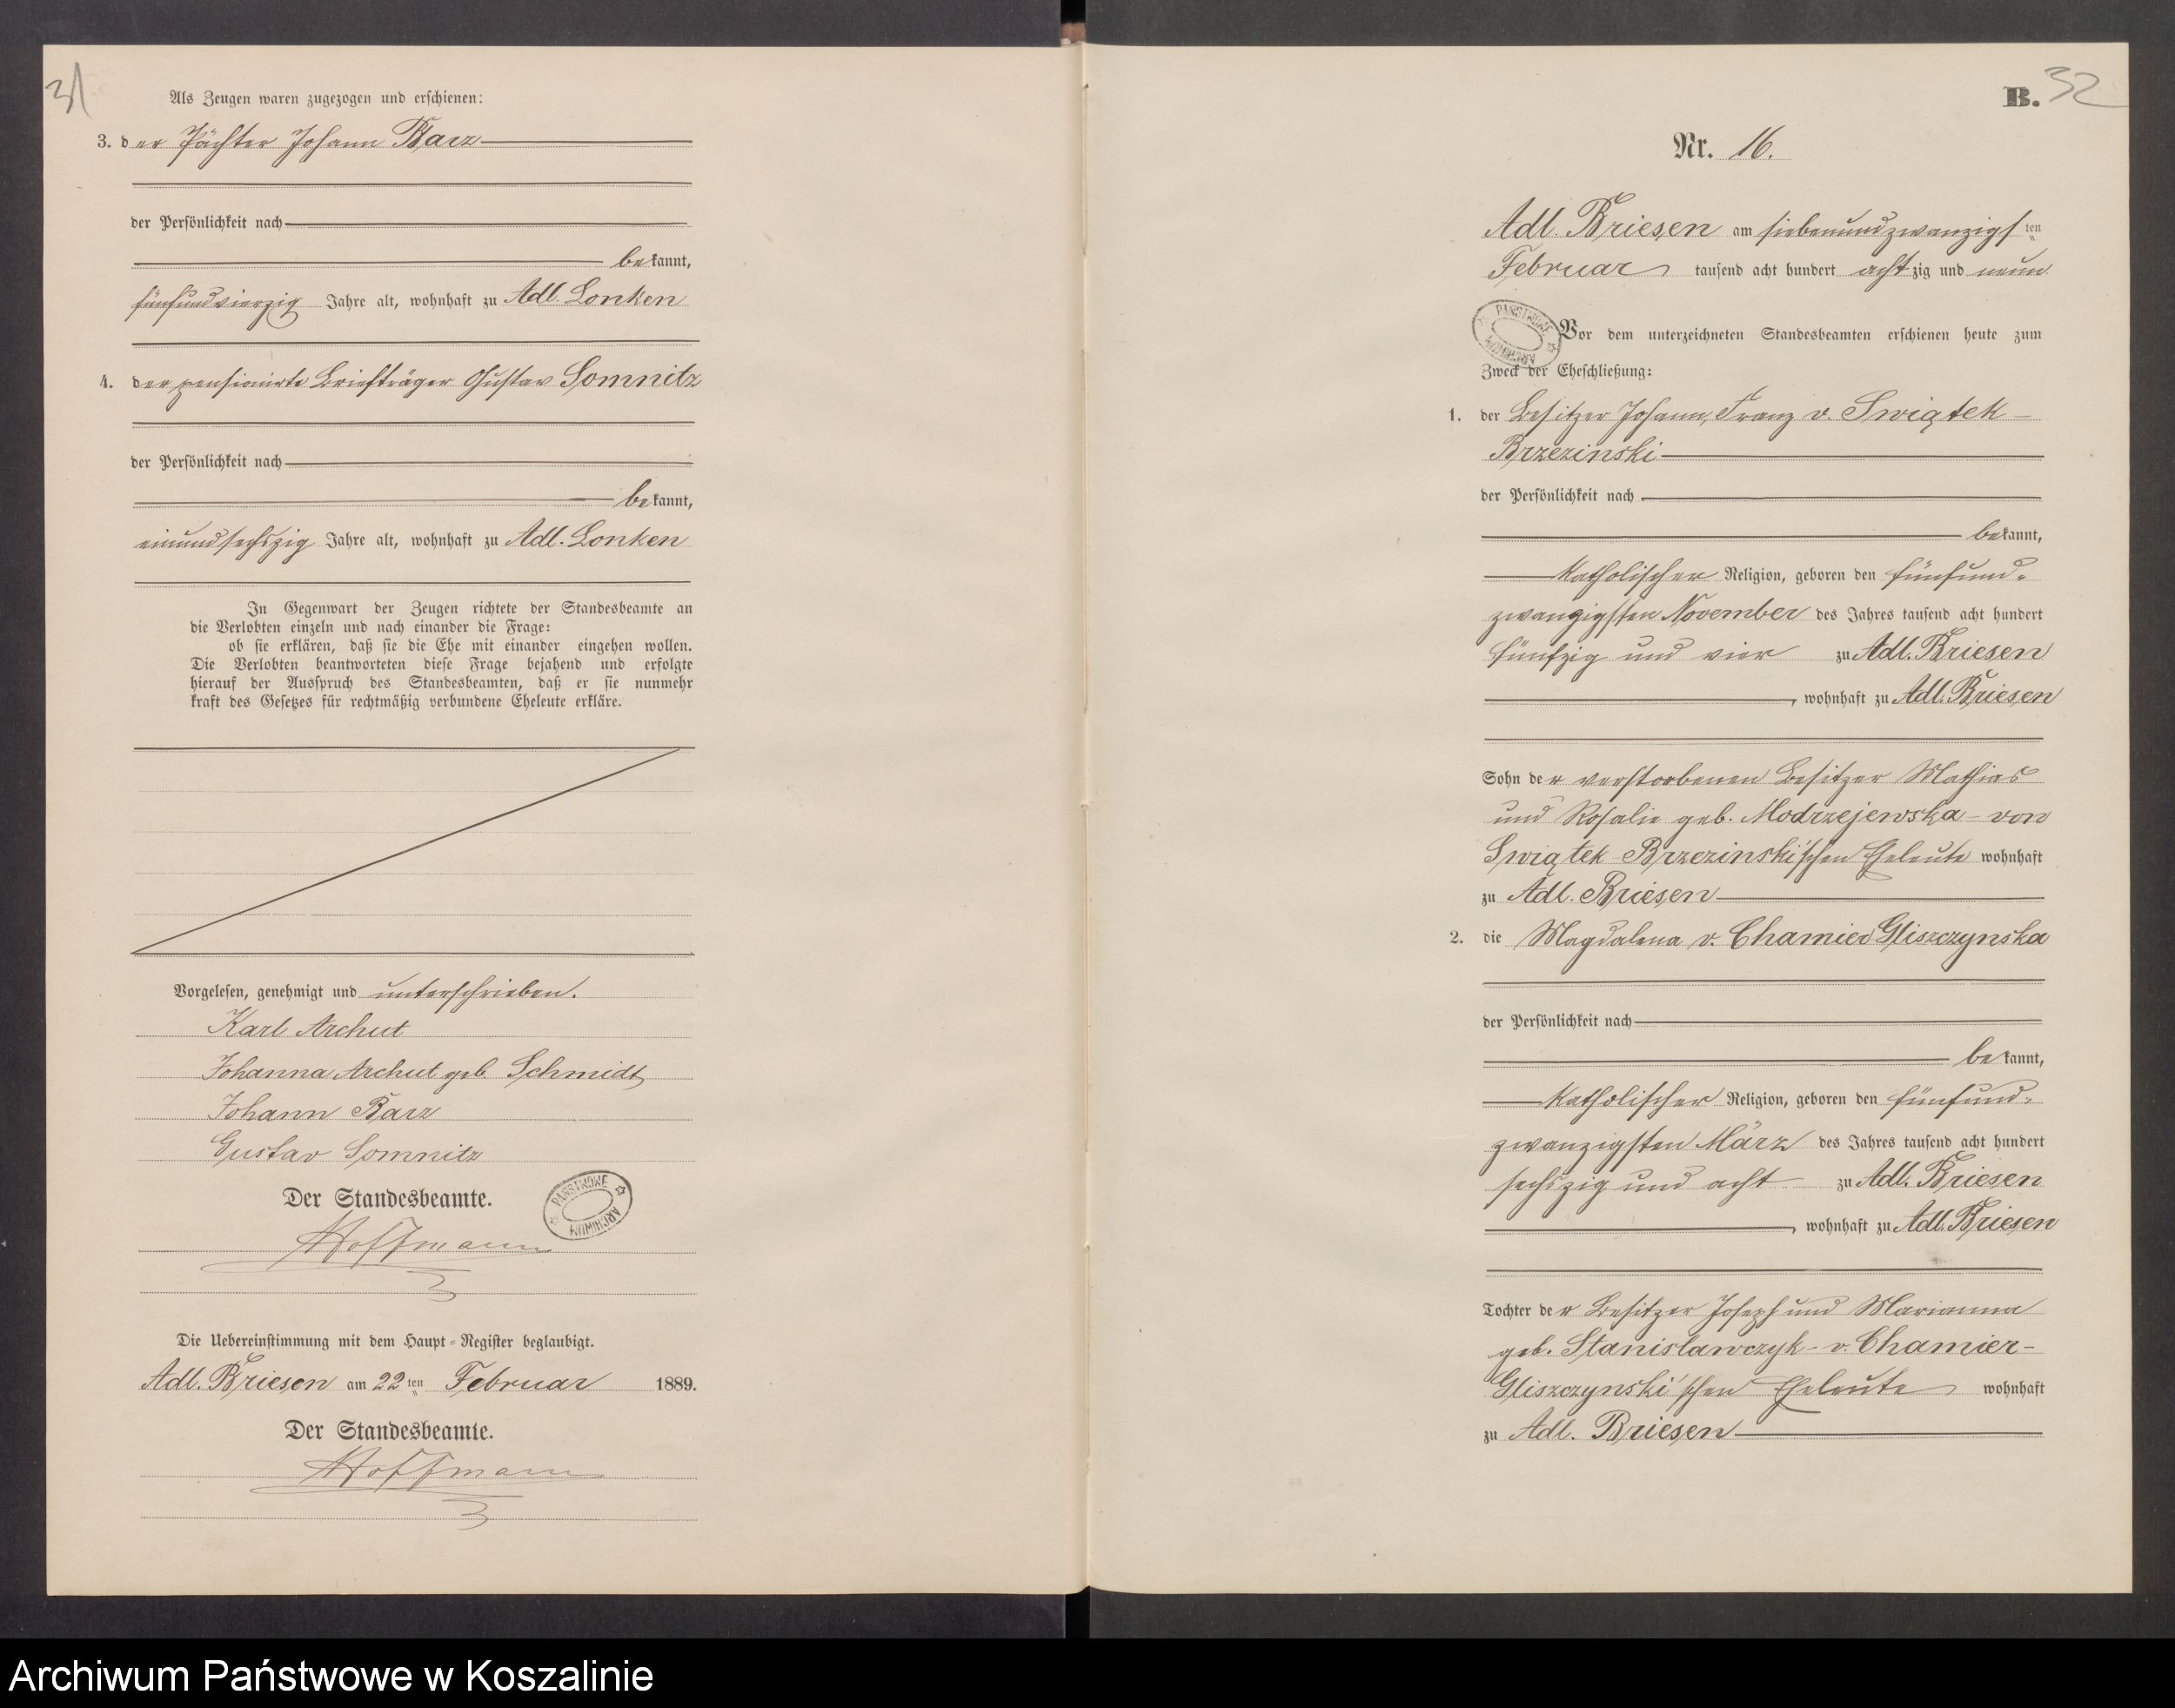 31
Als Zeugen waren zugezogen und erschienen:
3. der Pächter Johann Barz
der Persönlichkeit nach
bekannt,
fünfundvierzig Jahre alt, wohnhaft zu Adl. Lonken
4. der pensionirte Briefträger Gustav Somnitz
der Persönlichkeit nach
bekannt,
einundsechszig Jahre alt, wohnhaft zu Adl. Lonken
In Gegenwart der Zeugen richtete der Standesbeamte an
die Verlobten einzeln und nach einander die Frage:
ob sie erklären, daß sie die Ehe mit einander eingehen wollen.
Die Verlobten beantworteten diese Frage bejahend und erfolgte
hierauf der Ausspruch des Standesbeamten, daß er sie nunmehr
kraft des Gesetzes für rechtmäßig verbundene Eheleute erkläre.
Vorgelesen, genehmigt und unterschrieben.
Karl Archut
Johanna Archut geb. Schmidt
Johann Barz
Gustav Somnitz
Der Standesbeamte.
PAŃSTWOWE ARCHIWUM
Hoffmann
Die Uebereinstimmung mit dem Haupt-Register beglaubigt.
Adl. Briesen am 22ten Februar 1889.
Der Standesbeamte.
Hoffmann
B. 32
Nr. 16.
Adl. Briesen am siebenundzwanzigsten
Februar tausend acht hundert achtzig und neun
PAŃSTWOWE ARCHIWUM
Vor dem unterzeichneten Standesbeamten erschienen heute zum
Zweck der Eheschließung:
1. der Besitzer Johann, Franz v. Swiątek-
Brzezinski
der Persönlichkeit nach
bekannt,
Katholischer Religion, geboren den fünfund-
zwanzigsten November des Jahres tausend acht hundert
fünfzig und vier zu Adl. Briesen
, wohnhaft zu Adl. Briesen
Sohn der verstorbenen Besitzer Mathias
und Rosalie geb. Modrzejewska - von
Swiątek Brzezinski'schen Eheleute wohnhaft
zu Adl. Briesen
2. die Magdalena v. Chamier Gliszczynska
der Persönlichkeit nach
bekannt,
Katholischer Religion, geboren den fünfund-
zwanzigsten März des Jahres tausend acht hundert
sechszig und acht zu Adl. Briesen
, wohnhaft zu Adl. Briesen
Tochter der Besitzer Joseph und Marianna
geb. Stanislawczyk - v. Chamier-
Gliszczynski'schen Eheleute wohnhaft
zu Adl. Briesen
Archiwum Państwowe w Koszalinie